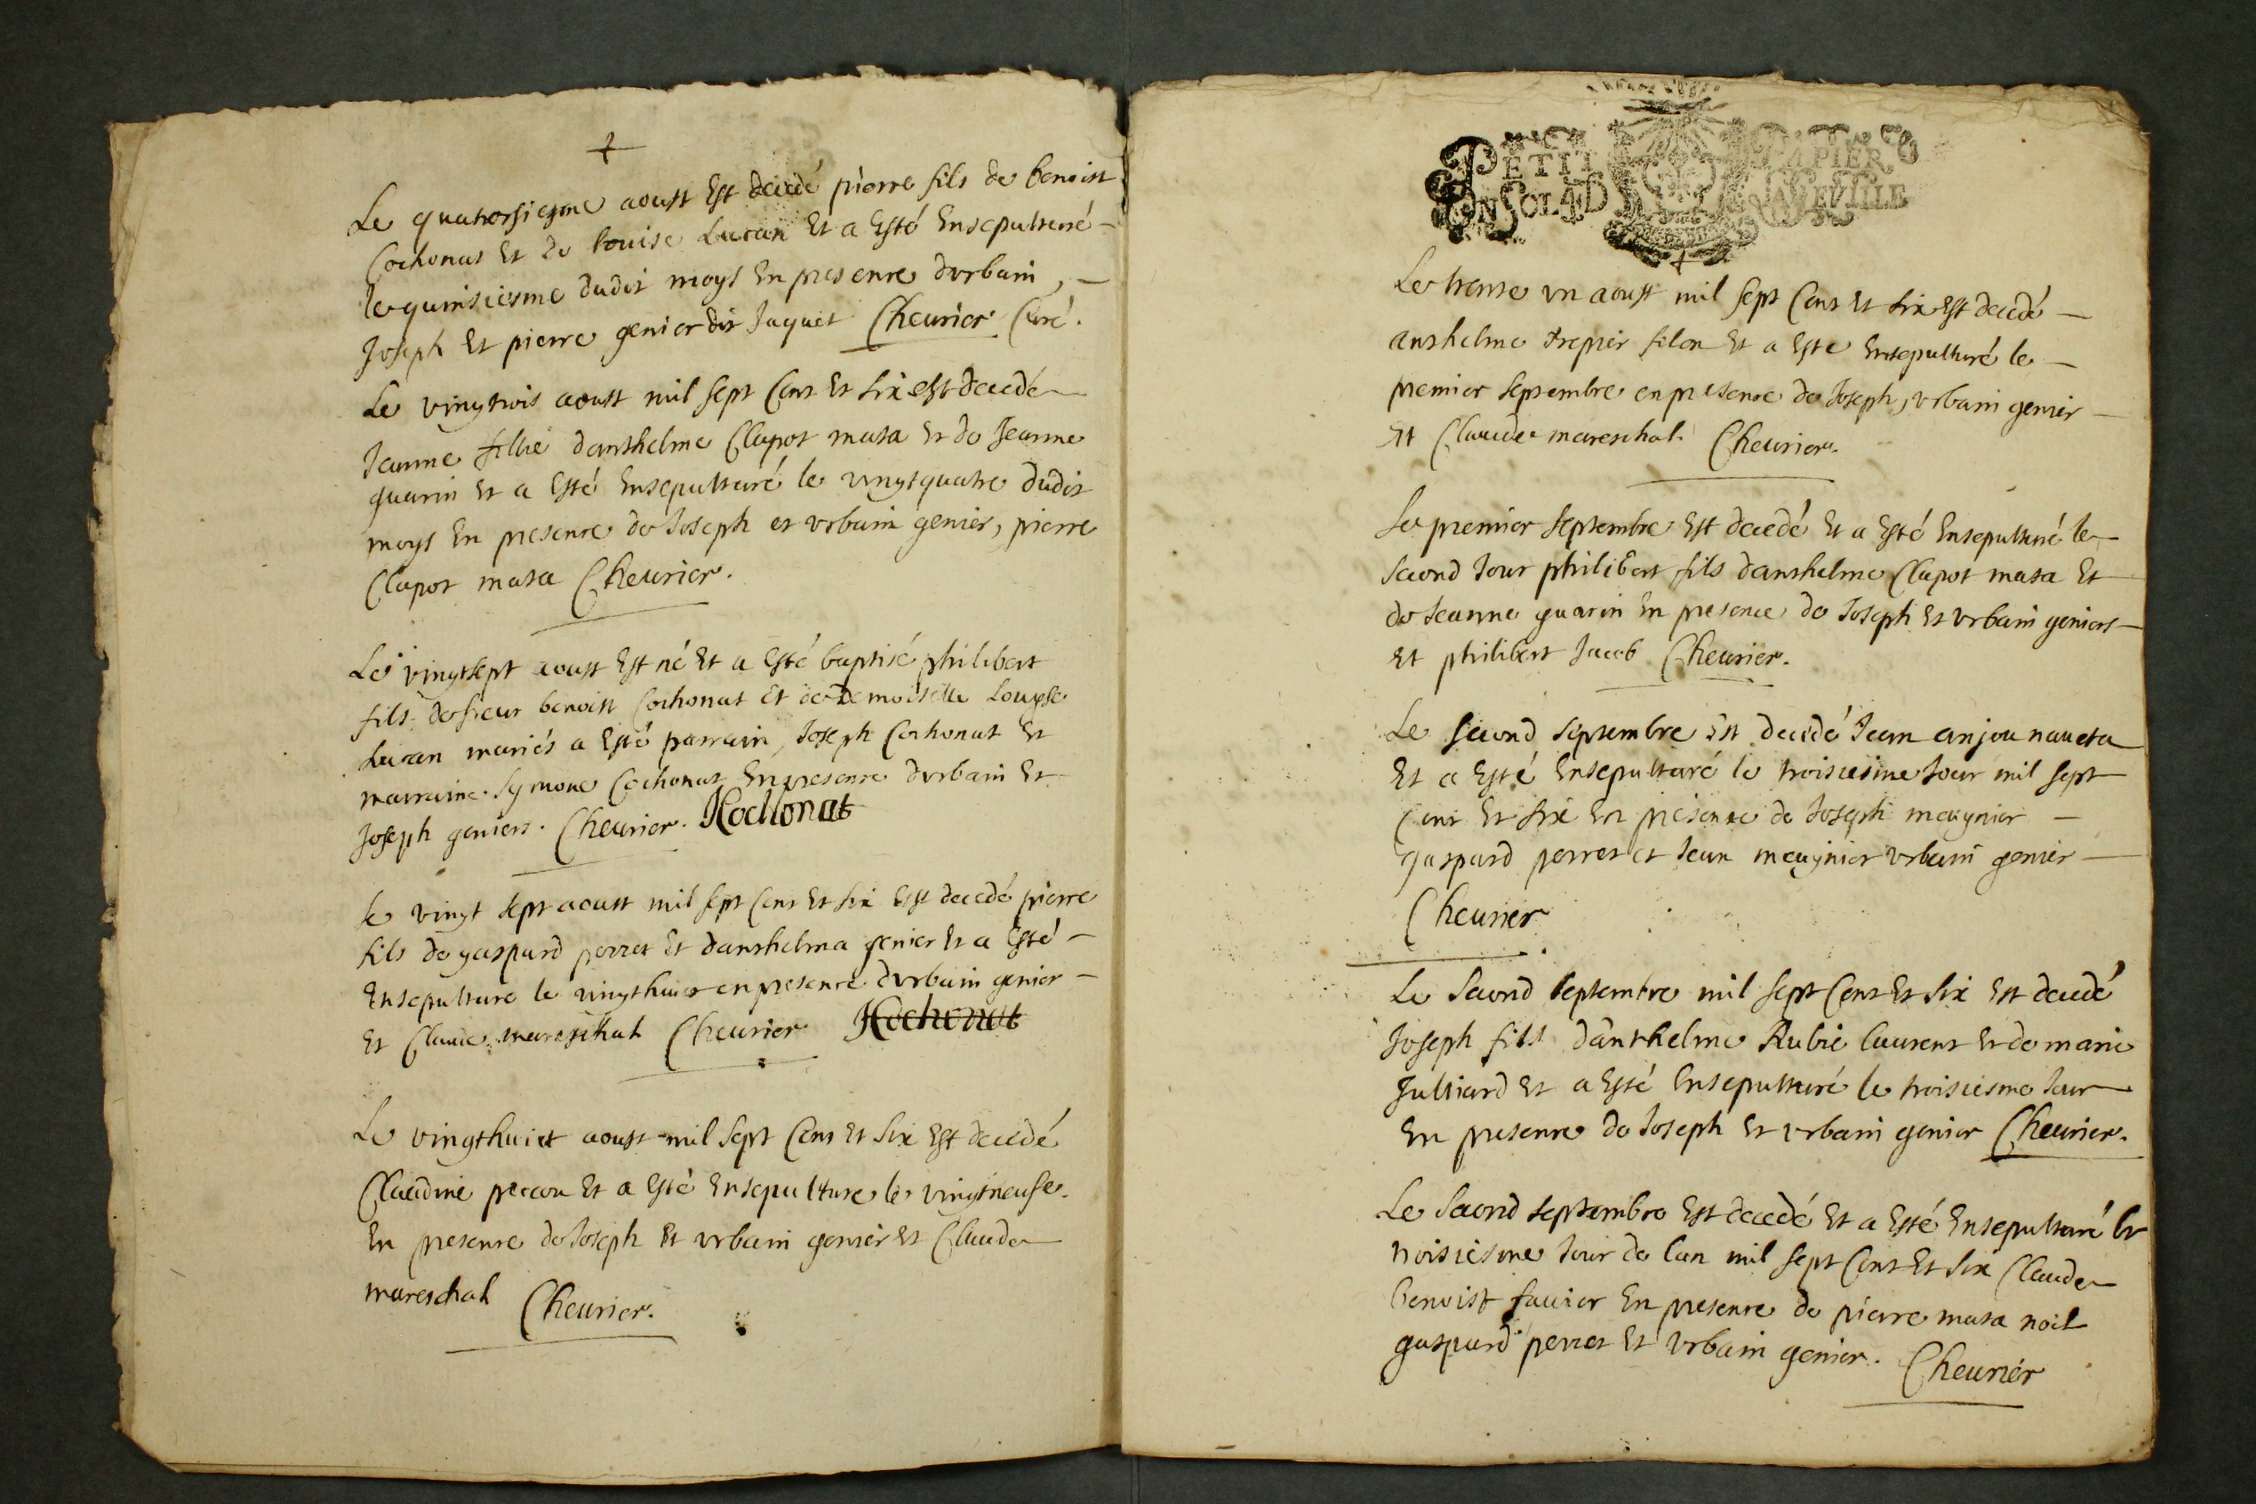 Le quatorsiesme aoust Est decedé pierre fils de benoist
Cochonat Et de louise Lucan Et a Esté Ensepulturé
le quinsiesme dudit moys En presence durbain,
Joseph Et pierre genier dit Jaquet Cheurier Curé.
Le vingtrois aoust mil sept Cens Et six est decedé
Jeanne fillie danthelme Clapot masa Et de Jeanne
guarin Et a Esté Ensepulturé le vingtquatre dudit
moys En presence de Joseph et vrbain genier, pierre
Clapot masa Cheurier.
Le vingtsept aoust Est né Et a Esté baptisé philibert
fils de sieur benoist Cochonat Et de demoiselle Louyse
Lucan mariés a Esté parrain, Joseph Cochonat Et
marraine Symone Cochonat En presence durbain Et
Joseph geniers. Cheurier. Kochonat
le vingt sept aoust mil sept Cens Et six Est decedé pierre
fils de gaspard perret Et danthelma genier Et a Esté
Ensepulture le vingthuict en presence durbain genier
Et Claude mareschal Cheurier Kochonat
Le vingthuict aoust mil sept Cens Et six Est decedé
Claudine Et a Esté Ensepulture le vingtneufe
En presence de Joseph Et vrbain genier Et Claude
mareschal Cheurier.
PETIT PAPIER
UN SOL 4 D LA FEUILLE
Le trente vn aoust mil sept Cens Et six Est decedé
anthelme trepier filon Et a Este Ensepulturé le
premier septembre en presence de Joseph, vrbain genier
Et Claude mareschal. Cheurier.
Le premier septembre Est decedé Et a Esté Ensepulturé le
second Jour philibert fils danthelme Clapot masa Et
de Jeanne guarin En presence de Joseph Et vrbain geniers
Et philibert Jacob Cheurier.
Le second septembre Est decedé Jean anjou naueta
Et a Esté Ensepulturé le troisiesme Jour mil sept
Cens Et six En presence de Joseph meugnier
gaspard perret et Jean meugnier vrbain genier
Cheurier
Le second septembre mil sept Cens Et six Est decedé
Joseph fils danthelme Rubie laurent Et de marie
Julliard Et a Esté Ensepulturé le troisiesme Jour
En presence de Joseph Et vrbain genier Cheurier.
Le second septembre Est decedé Et a Esté Ensepulturé le
troisiesme Jour de lan mil sept Cens Et six Claude
benoist fauier En presence de pierre masa noil
gaspard perret Et vrbain genier. Cheurier